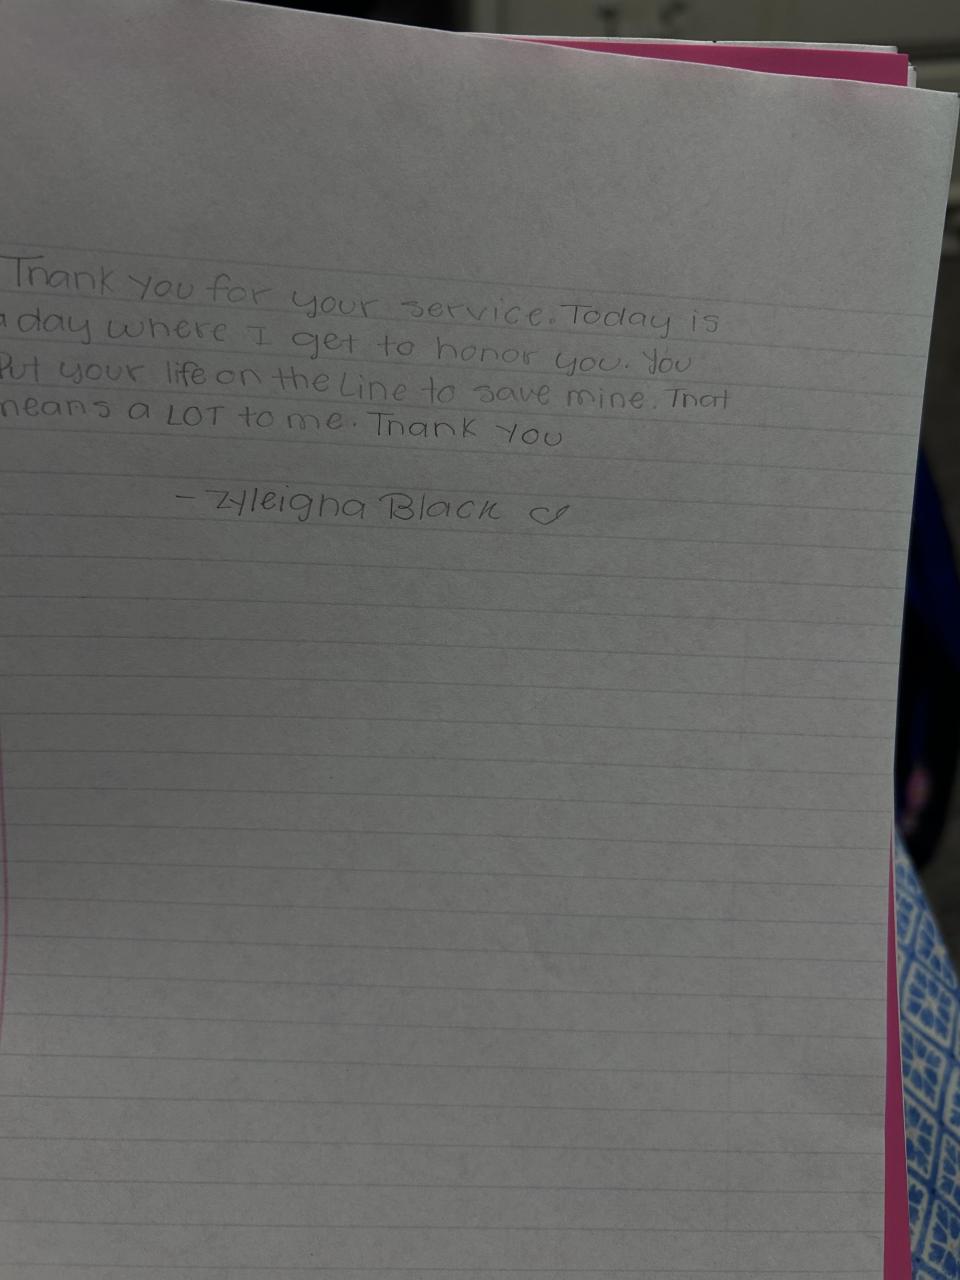 Thank you for your service. Today is
a day where I get to honor you. You
Put your life on the Line to save mine. That
means a LOT to me. Thank you
- Zyleigha Black ♡